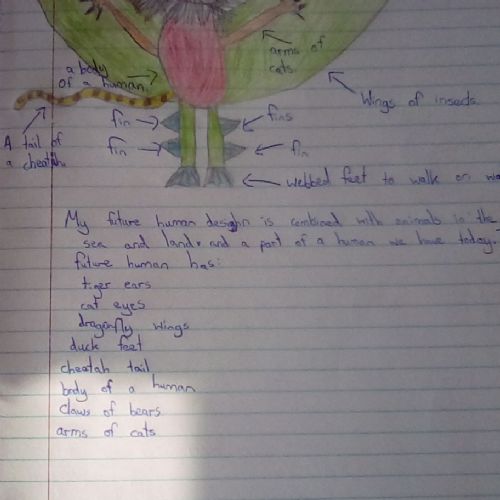 arms of
cats.
a body
of a human.
Wings of insects.
A tail of
a cheetah
fin
fins
fin
fin
webbed feet to walk on
My future human design is combined with animals in the
sea and land, and a part of a human we have today.
future human has:
tiger ears
cat eyes
dragonfly wings
duck feet
cheetah tail
body of a human
claws of bears
arms of cats